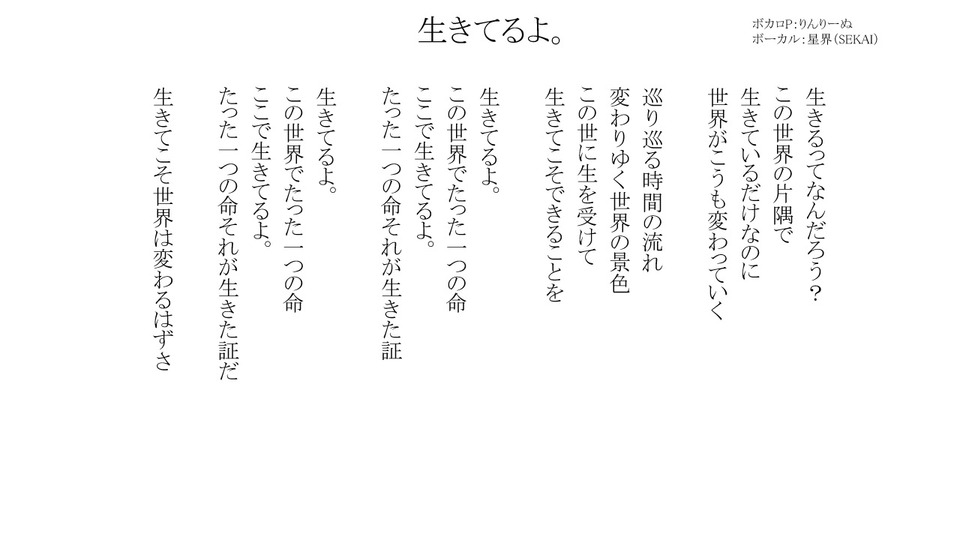 生きてるよ。
ボカロP：りんりーぬ
ボーカル：星界（SEKAI）
生きるってなんだろう？
この世界の片隅で
生きているだけなのに
世界がこうも変わっていく
巡り巡る時間の流れ
変わりゆく世界の景色
この世に生を受けて
生きてこそできることを
生きてるよ。
この世界でたった一つの命
ここで生きてるよ。
たった一つの命それが生きた証
生きてるよ。
この世界でたった一つの命
ここで生きてるよ。
たった一つの命それが生きた証だ
生きてこそ世界は変わるはずさ